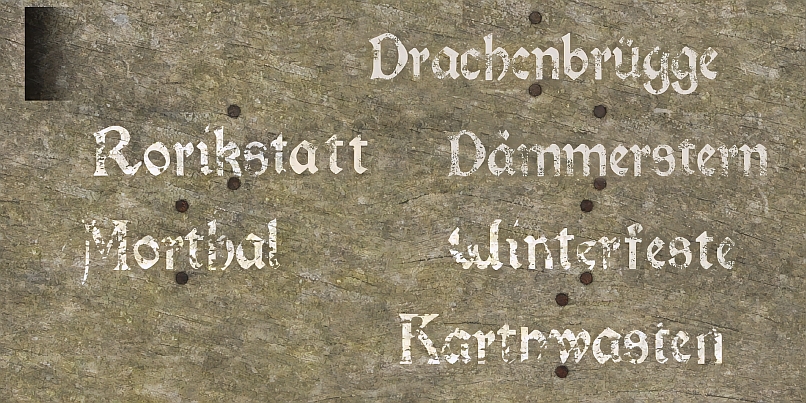 Drachenbrügge
Rorikstatt
Dämmerstern
Morthal
Winterfeste
Karthwasten